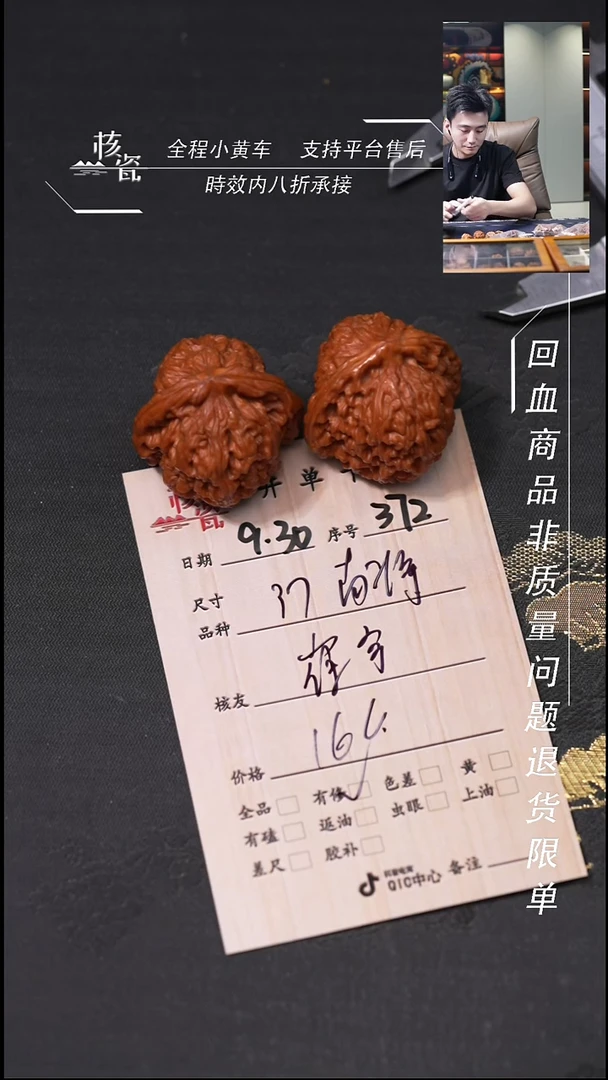 核瓷
全程小黄车 支持平台售后
時效内八折承接
回血商品非质量问题退货限单
核瓷 开单
日期 9.30 序号 372
尺寸 37 南将
品种
核友
价格
全品 有修 色差 黄
有磕 返油 虫眼 上油
差尺 胶补
抖音电商 QIC中心 备注